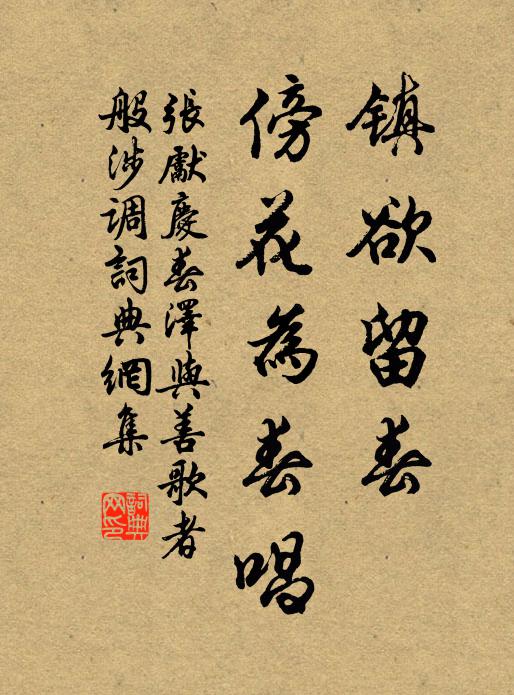 镇欲留春
傍花為春唱
張獻慶春澤與善歌者
般涉调詞典網集
詞典網印